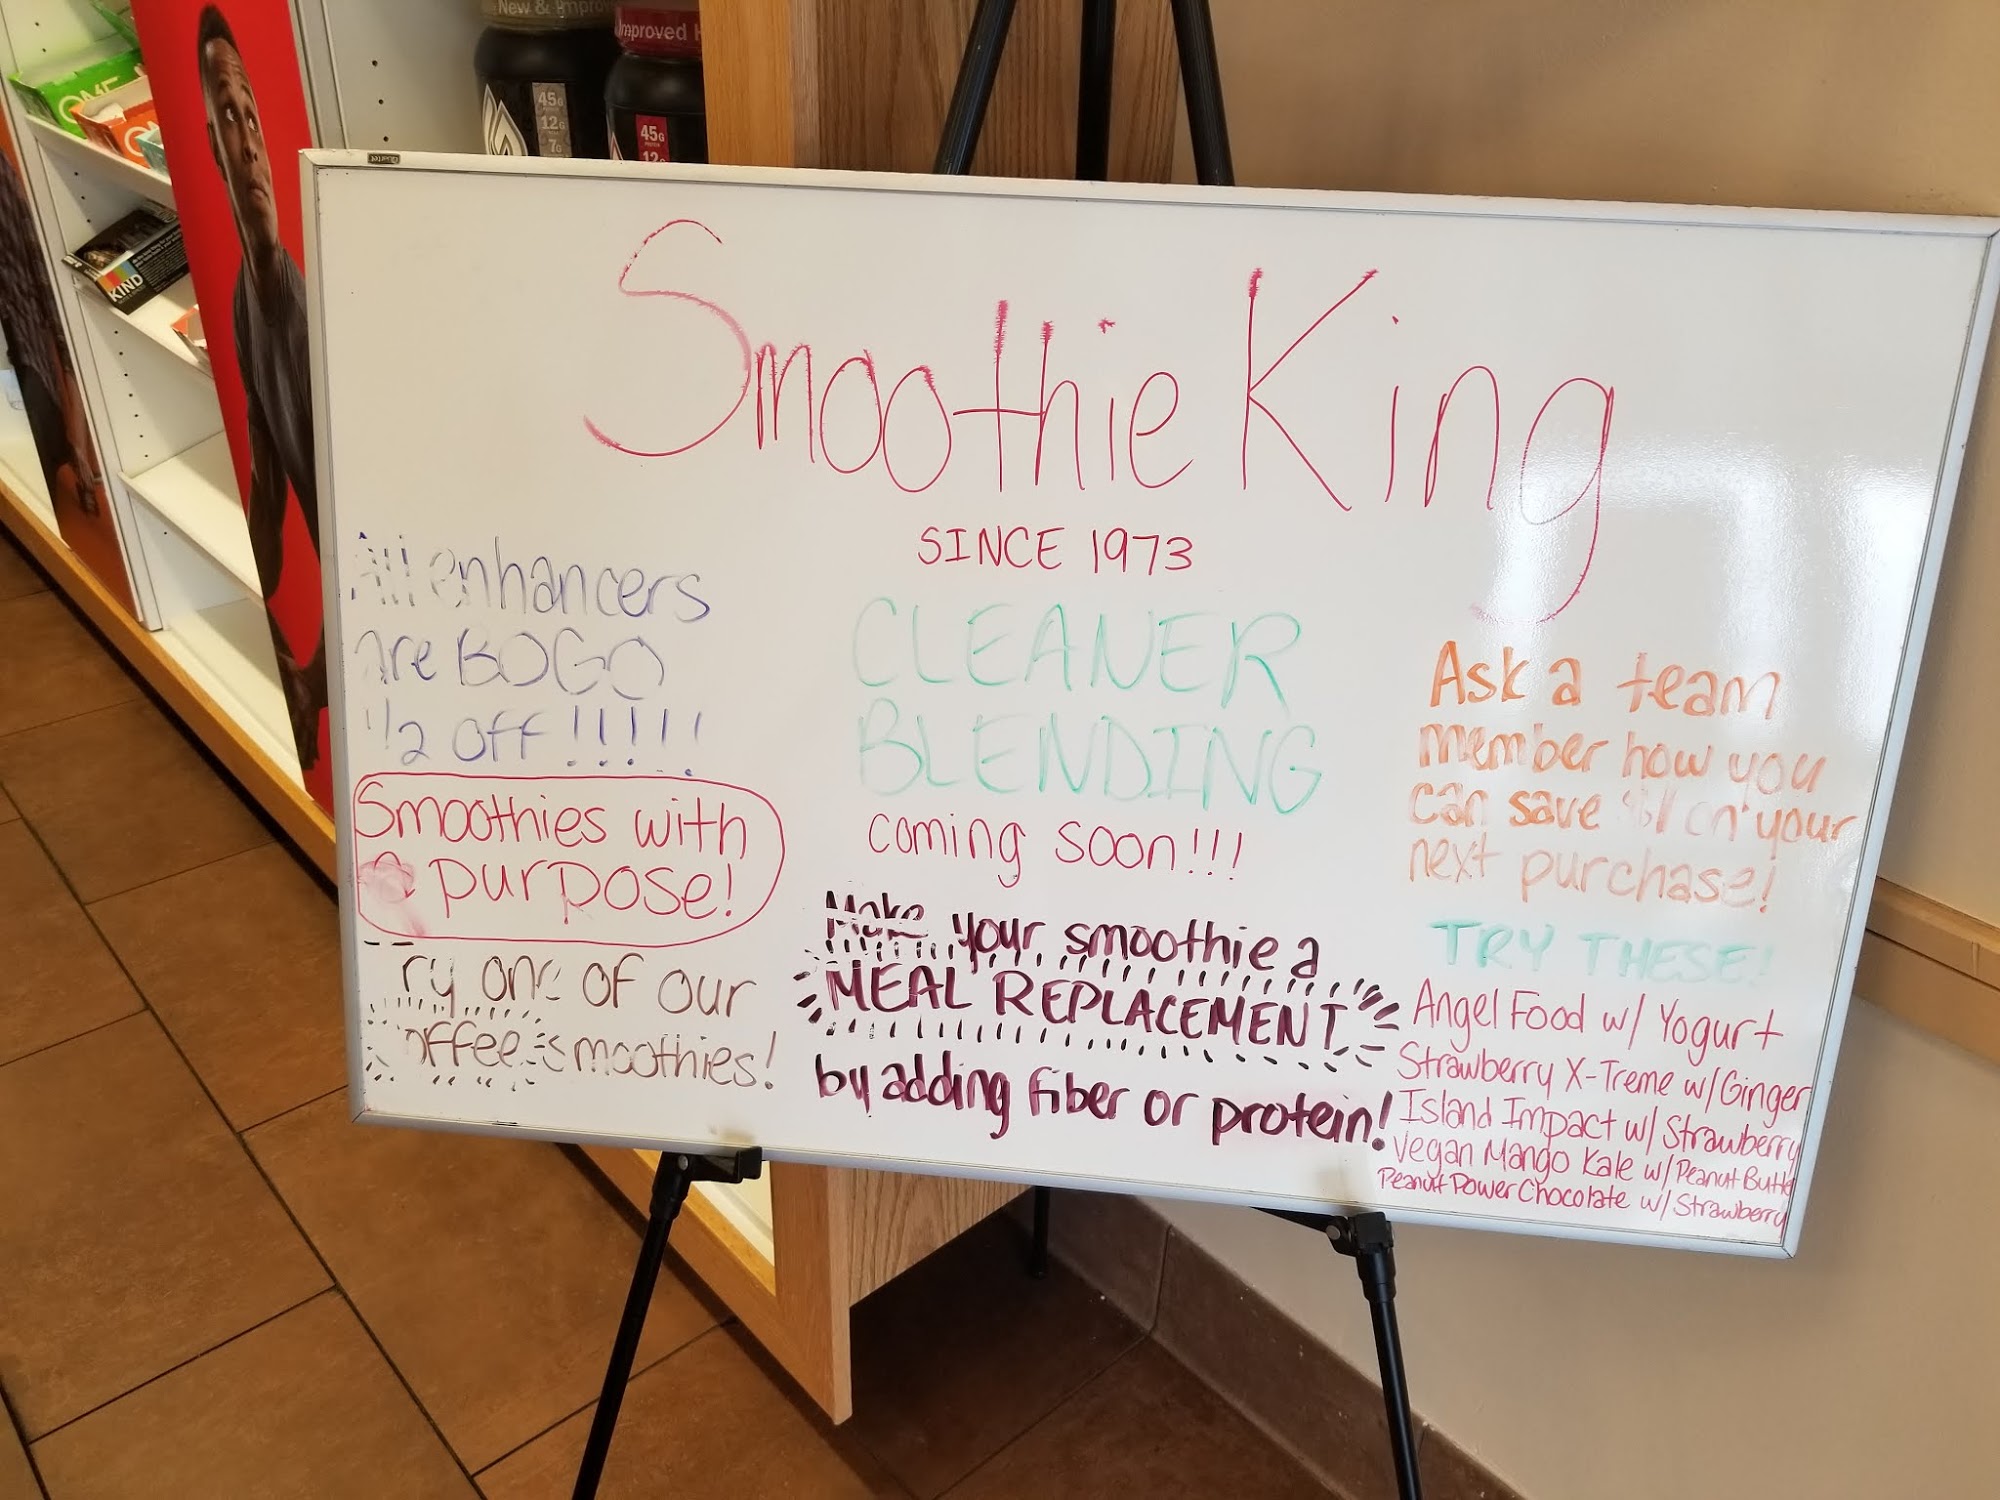 New &
Improved
45G
12G
7G
45G
12G
KIND
Quartet
Smoothie King
SINCE 1973
All enhancers
are BOGO
1/2 off!!!!!
Smoothies with
a purpose!
Try one of our
coffee smoothies!
CLEANER
BLENDING
coming soon!!!
Make your smoothie a
MEAL REPLACEMENT
by adding fiber or protein!
Ask a team
member how you
can save $1 on your
next purchase!
TRY THESE!
Angel Food w/ Yogurt
Strawberry X-Treme w/Ginger
Island Impact w/ Strawberry
Vegan Mango Kale w/ Peanut Butte
Peanut Power Chocolate w/ Strawberry